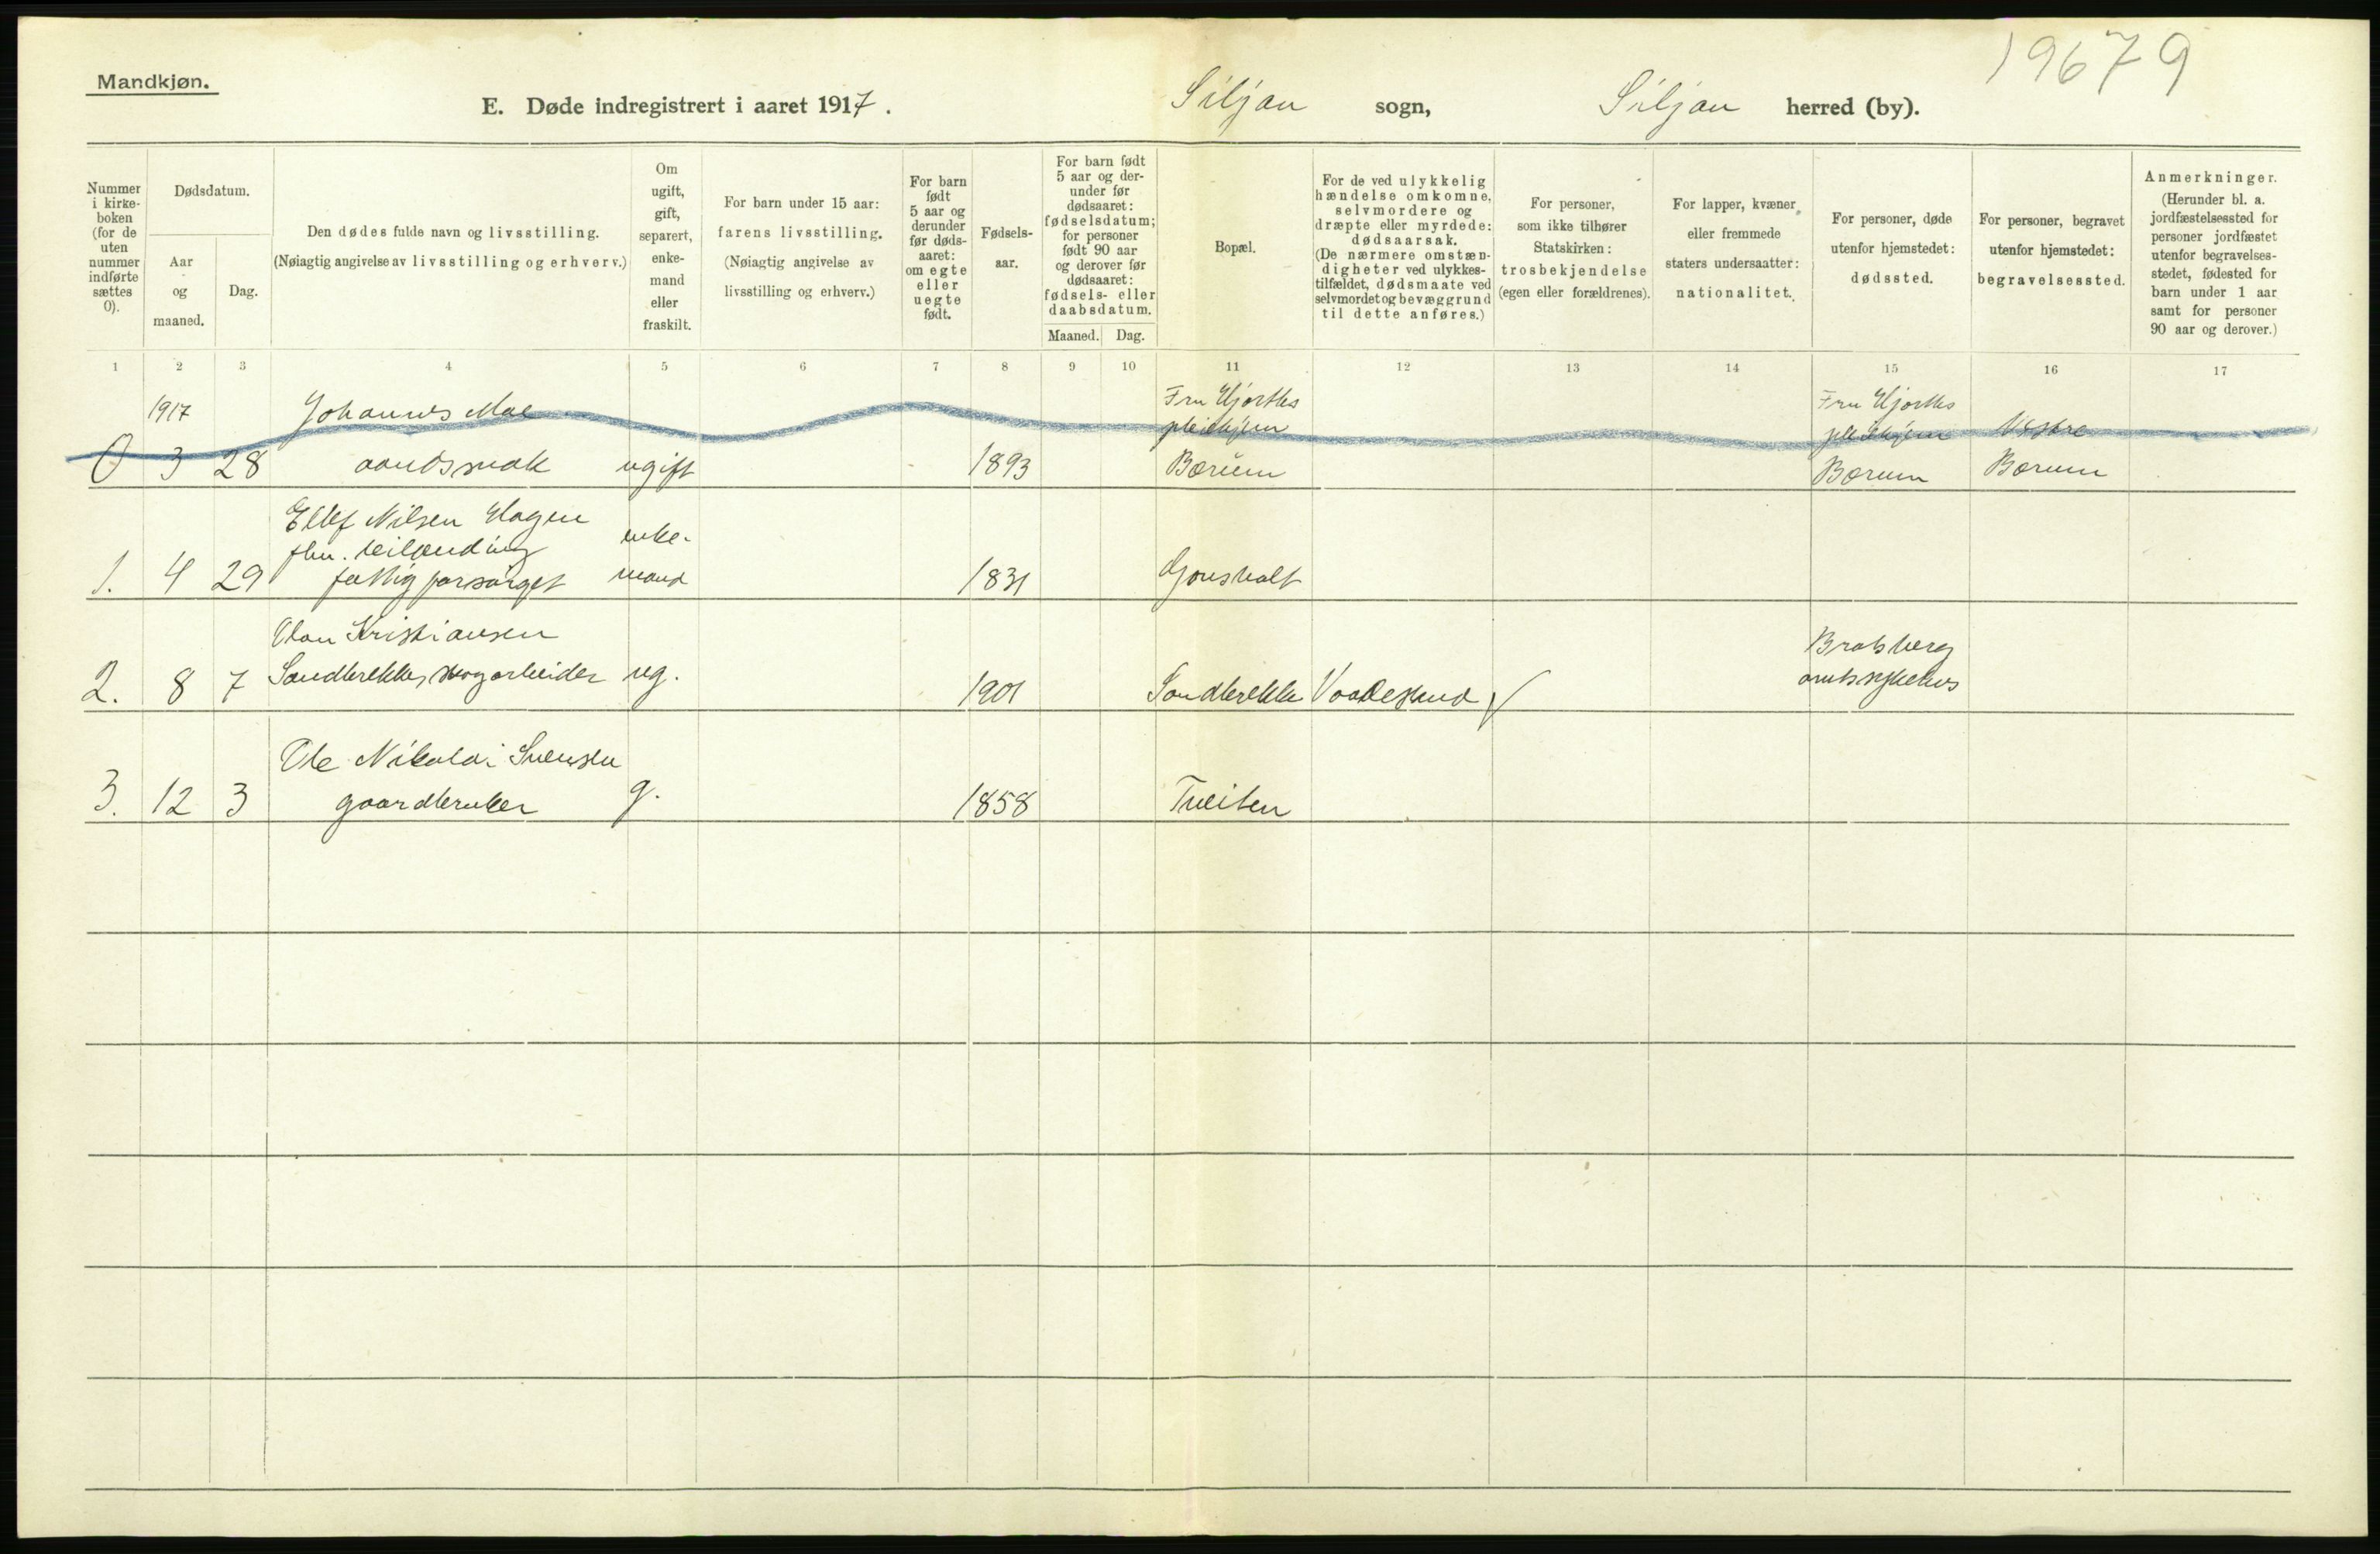 19679
Mandkjøn.
E. Døde indregistrert i aaret 1917. Siljan sogn, Siljan herred (by).
Nummer i kirke-boken (for de uten nummer indførte sættes 0).
Dødsdatum.
Aar og maaned.
Dag.
Den dødes fulde navn og livsstilling.
(Nøiagtig angivelse av livsstilling og erhverv.)
Om ugift, gift, separert, enke-mand eller fraskilt.
For barn under 15 aar:
farens livsstilling.
(Nøiagtig angivelse av livsstilling og erhverv.)
For barn født 5 aar og derunder før døds-aaret: om egte eller uegte født.
Fødsels-aar.
For barn født 5 aar og der-under før dødsaaret: fødselsdatum; for personer født 90 aar og derover før dødsaaret: fødsels- eller daabsdatum.
Maaned. Dag.
Bopæl.
For de ved ulykkelig hændelse omkomne, selvmordere og dræpte eller myrdede: dødsaarsak.
(De nærmere omstæn-digheter ved ulykkes-tilfældet, dødsmaate ved selvmordet og bevæggrund til dette anføres.)
For personer, som ikke tilhører Statskirken: trosbekjendelse (egen eller forældrenes).
For lapper, kvæner eller fremmede staters undersaatter: nationalitet.
For personer, døde utenfor hjemstedet: dødssted.
For personer, begravet utenfor hjemstedet: begravelsessted.
Anmerkninger.
(Herunder bl. a. jordfæstelsessted for personer jordfæstet utenfor begravelses-stedet, fødested for barn under 1 aar samt for personer 90 aar og derover.)
1 2 3 4 5 6 7 8 9 10 11 12 13 14 15 16 17
1917 Johannes Moe Fru Hjorths Fru Hjorths
pleiehjem pleiehjem Vestre
0 3 28 aandssvak ugift 1893 Bærum Bærum Bærum
Ellef Nilsen Hagen
fhv. leilending enke-
1. 4 29 fattigforsørget mand 1831 Gonsholt
Olav Kristiansen Bratsberg
2. 8 7 Sandbrekke, skogarbeider ug. 1901 Sandbrekke Vaadeskud √ amtssykehus
Ole Nikolai Svensen
3. 12 3 gaardbruker g. 1858 Tveiten